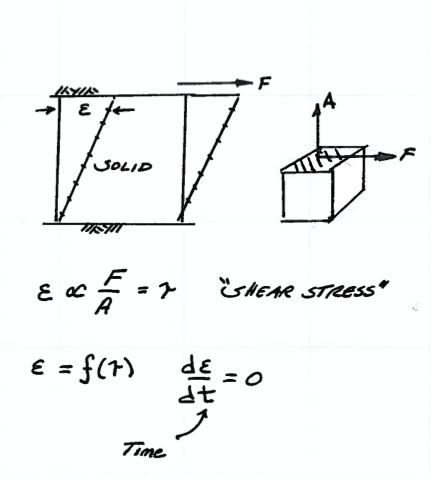 F
ε
SOLID
A
F
ε ∝ F/A = τ "SHEAR STRESS"
ε = f(τ) dε/dt = 0
Time